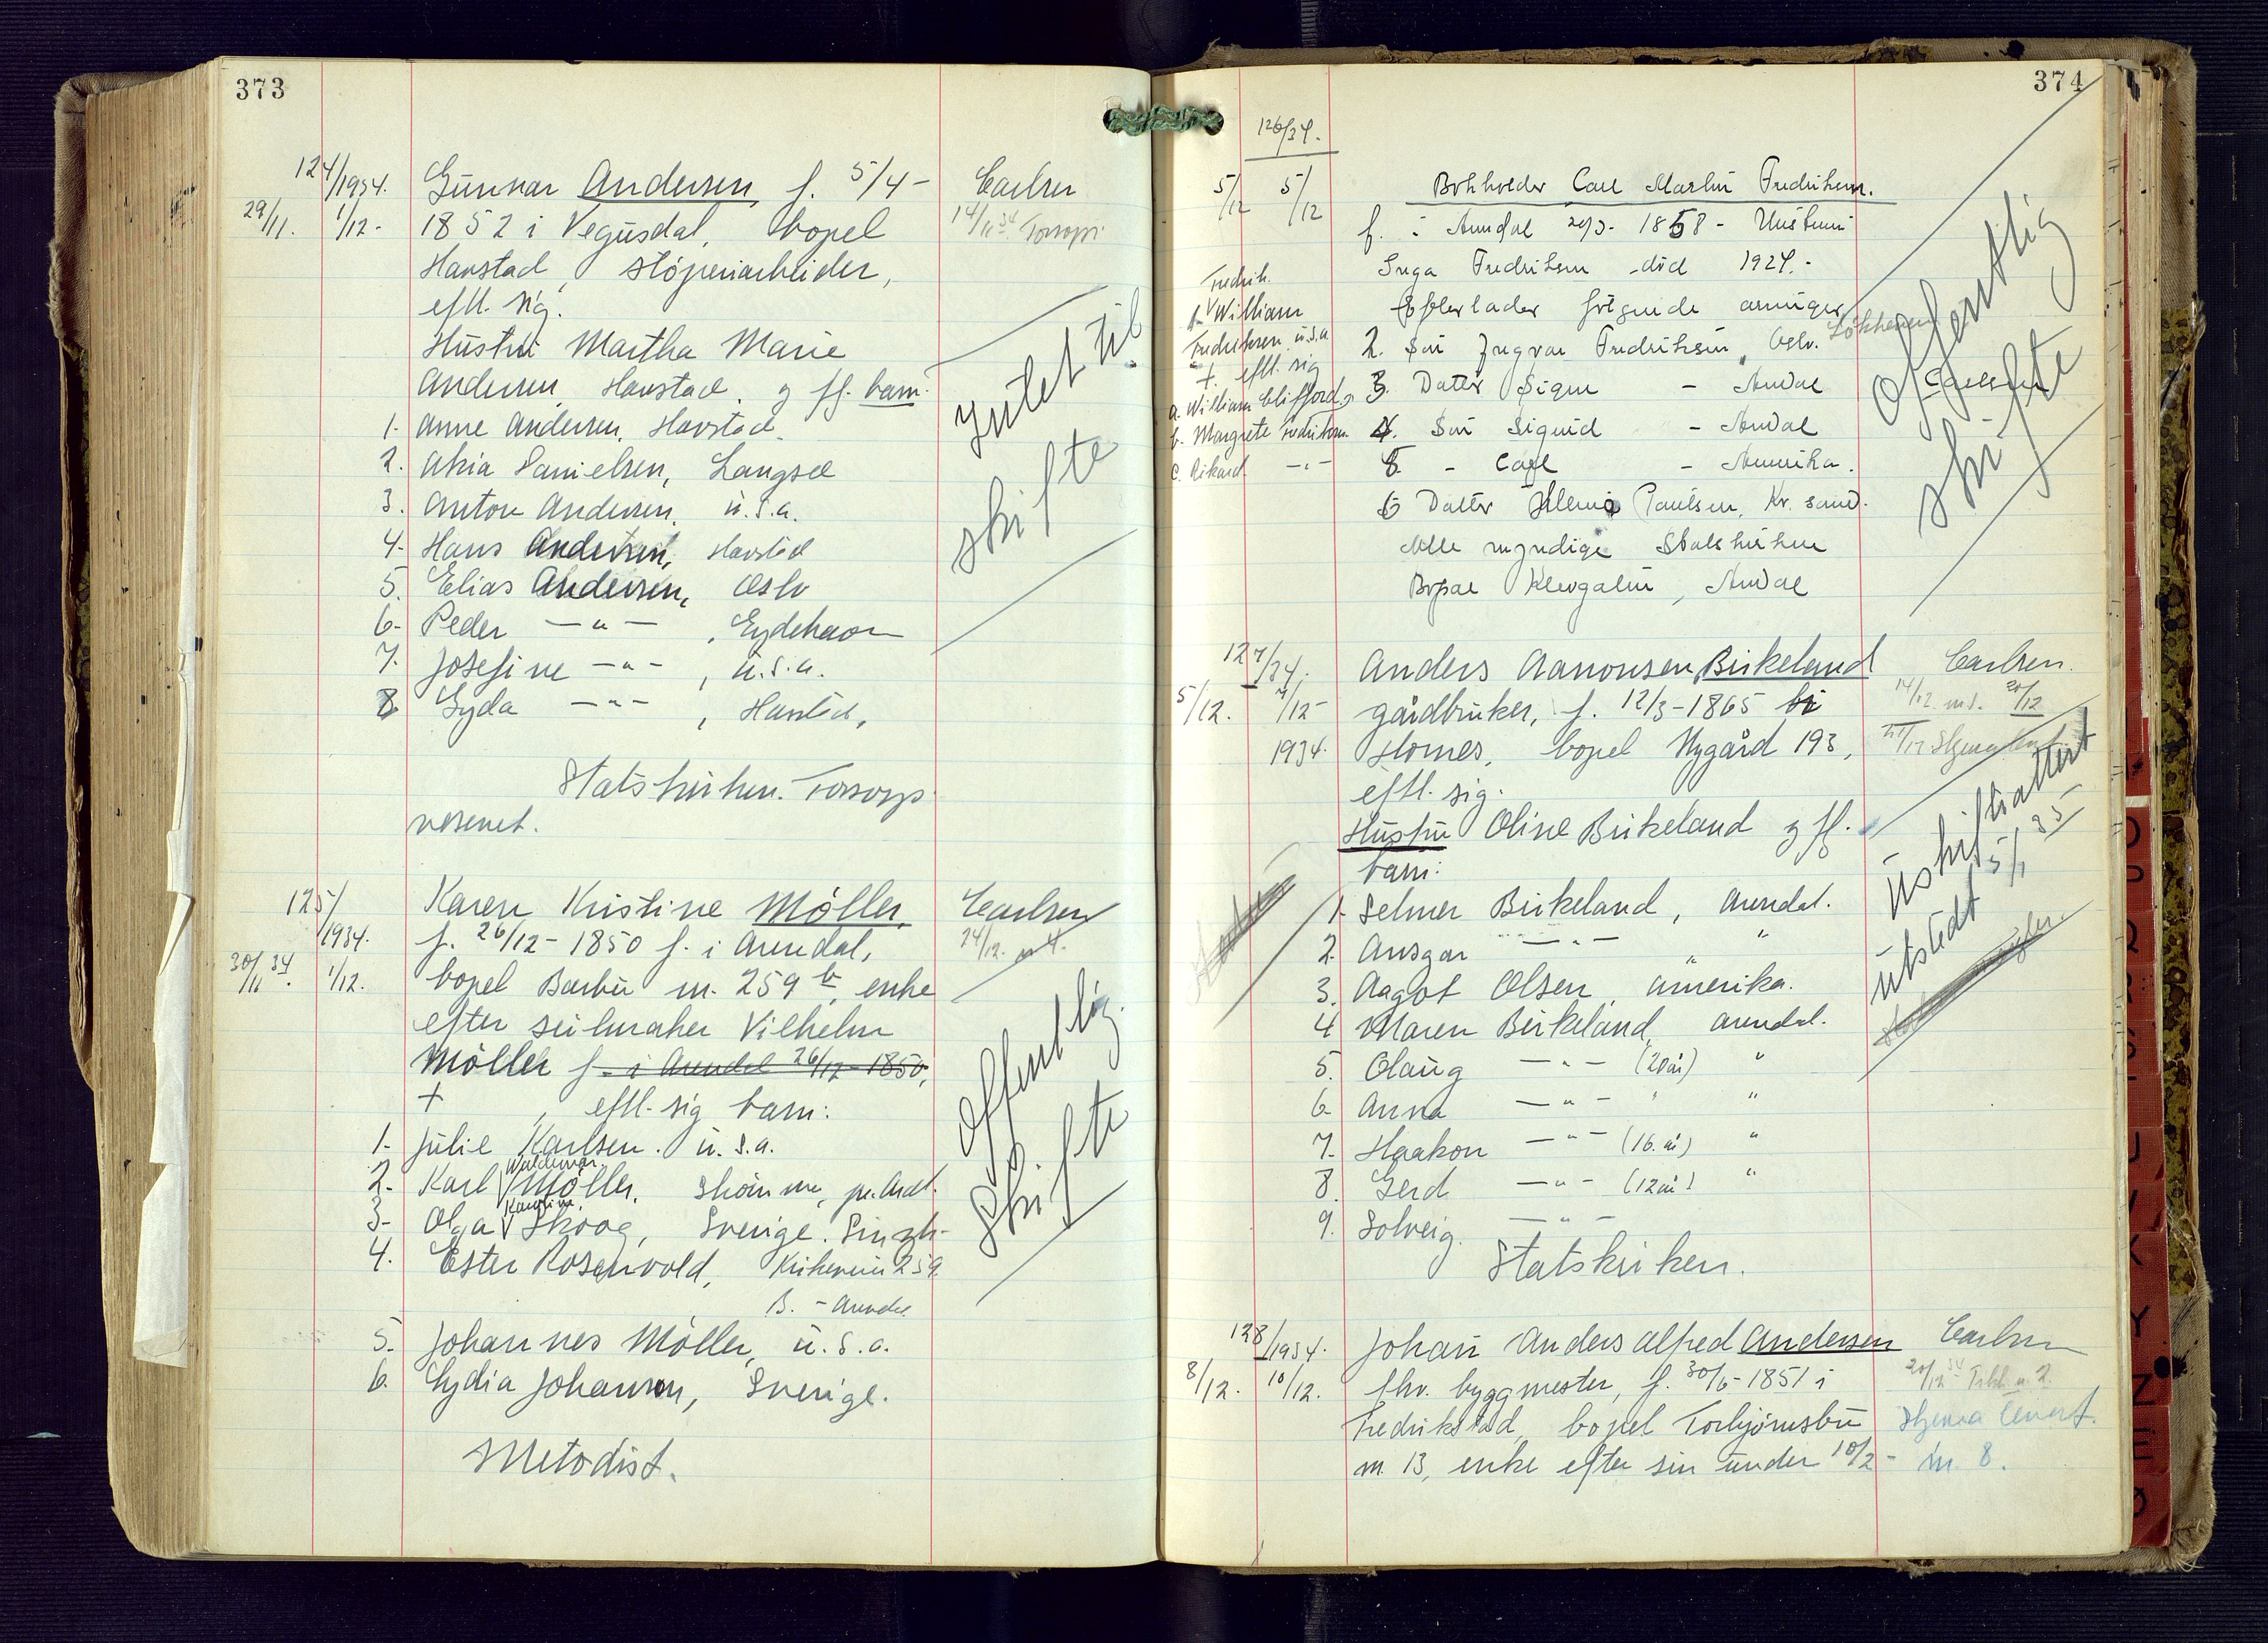 373
124/1934.
29/11. 1/12-
Gunnar Andersen, f. 5/4-
1852 i Vegusdal, bopel
Havstad, støperiarbeider,
eftl. sig.
Hustru Martha Marie
Andersen, Havstad, og ff. barn:
1. Anne Andersen, Havstad.
2. Danielsen, Langsæ
3. Anton Andersen, U.S.A.
4. Hans Andersen, Havstad
5. Elias Andersen, Oslo
6. Peder -"- , Eydehavn
7. Josefine -"- , U.S.A.
8 Gyda -"- , Havstad,
Statskirken. Forsorgs
vesenet.
Carlsen
14/11 34 Forsorgs
Intet til
skifte
125/1934.
30/11 34. 1/12.
Karen Kristine Møller,
f. 26/12-1850 f. i Arendal,
bopel Barbu m. 259 b, enke
efter seilmaker Vilhelm
Møller f. i Arendal 26/12-1850,
+ , eftl. sig barn:
1. Julie Karlsen. U.S.A.
2. Karl Waldemar Møller, pr. Ardl.
3. Olga Karoline Skoog, Sverige.
4. Ester Rosenvold, 259
B. - Arendal
5. Johannes Møller, U.S.A.
6. Lydia Johansen, Sverige.
Metodist.
Carlsen
24/12.
Offentlig
skifte
374
126/34.
5/12 5/12
Bokholder Carl Martin Fredriksen.
f. i Arendal 20/3- 1858 - Hustru
Inga Fredriksen død 1924.-
Efterlader følgende arvinger
Fredrik
1. William
Fredriksen U.S.A.
+. eftl. sig
a. William Clifford
b. Margrete Fredriksen
c. Rikard -"-
2. Søn Ingvar Fredriksen, Oslo.
3. Datter Signe - Arndal
4. Søn Sigurd - Arndal
5. - Carl - Amerika.
6 Datter Paulsen, Kr. sand.
Alle myndige Statskirken
Bopæl Kløvgaten, Arndal
Carlsen
Offentlig
skifte
127/34.
5/12. 7/12-
1934.
Anders Aanonsen Birkeland
gårdbruker, f. 12/3-1865 i
Hornes, bopel Nygård 193,
eftl. sig.
Hustru Oline Birkeland og ff.
barn:
1. Selmer Birkeland, Arendal.
2. Ansgar -"- "
3. Aagot Olsen, Amerika.
4 Maren Birkeland, Arendal.
5. Olaug -"- (20 år) "
6. Anna -"- " "
7. Haakon -"- (16. år) "
8. Gerd -"- (12 år) "
9. Solveig. -"-
Statskirken.
Carlsen.
14/12. 20/12
Uskifteattest
utstedt 5/1 35
128/1934.
8/12. 10/12.
Johan Anders Alfred Andersen
fhv. byggmester, f. 30/6-1851 i
Fredrikstad, bopel Torbjørnsbu
m. 13, enke efter sin under 10/2-
Carlsen
m. 8.